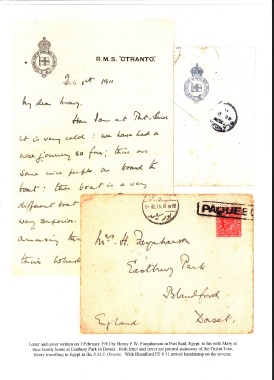 R.M.S. "OTRANTO."
Feb 1st 1911
My dear Mary.
Here I am at Port Said
it is very cold: we have had a
nice journey so far; there are
some nice people on board the
boat: this boat is a very
different boat
way superior.
amusing
their
PAQUEBO
Mrs H. Farquharson
Eastbury Park
Blandford
England
Dorset.
Letter and cover written on 1 February 1911 by Henry F.W. Farquharson on Port Said, Egypt, to his wife Mary at
their family home at Eastbury Park in Dorset. Both letter and cover are printed stationery of the Orient Line,
Henry travelling to Egypt in the R.M.S. Otranto. With Blandford FE 8 11 arrival handstamp on the reverse.